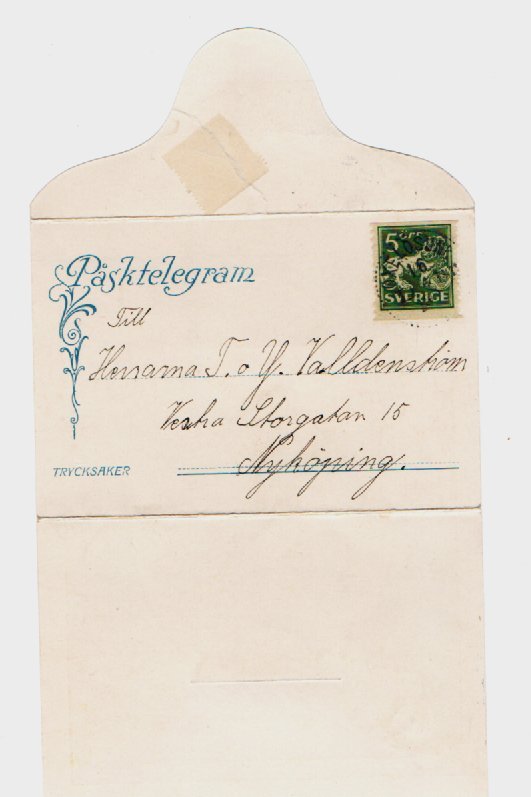 Påsktelegram
5 ÖRE
SVERIGE
Till
Herrarna T. o Y. Valldenström
Vestra Storgatan 15
Nyköping.
TRYCKSAKER